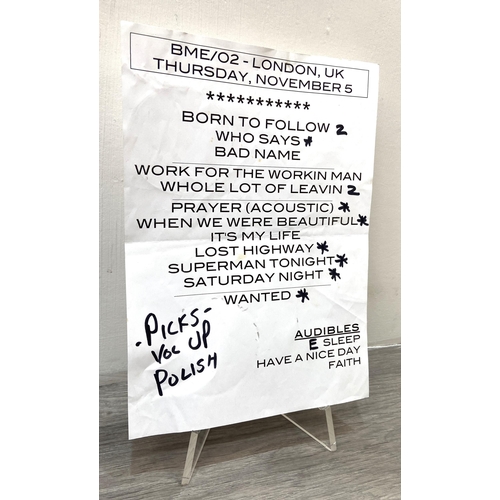 BME/O2 - LONDON, UK
THURSDAY, NOVEMBER 5
***********
BORN TO FOLLOW 2
WHO SAYS *
BAD NAME
WORK FOR THE WORKIN MAN
WHOLE LOT OF LEAVIN 2
PRAYER (ACOUSTIC) *
WHEN WE WERE BEAUTIFUL *
IT'S MY LIFE
LOST HIGHWAY *
SUPERMAN TONIGHT *
SATURDAY NIGHT *
WANTED *
-PICKS-
VOC UP
POLISH
AUDIBLES
E SLEEP
HAVE A NICE DAY
FAITH